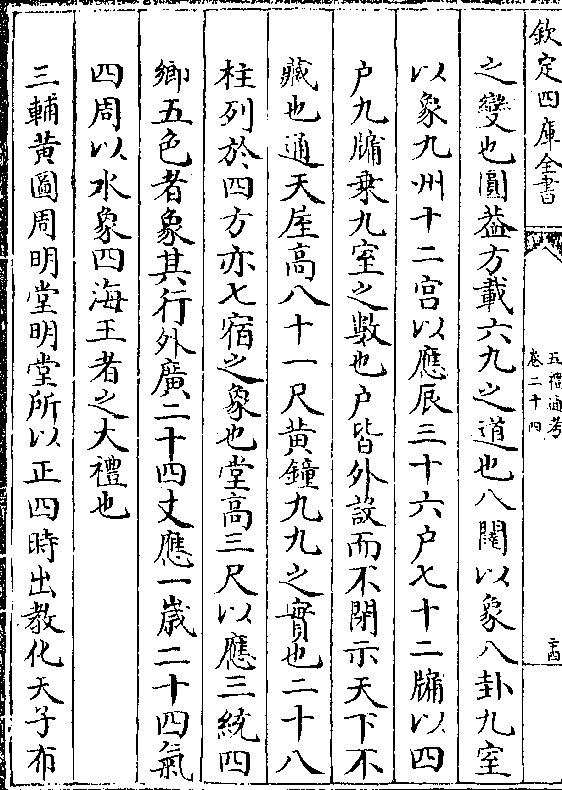 欽定四庫全書
五禮通考
卷二十四
二十四
之變也圓葢方載六九之道也八闥以象八卦九室
以象九州十二宫以應辰三十六户七十二牖以四
户九牖乗九室之數也户皆外設而不閉示天下不
藏也通天屋高八十一尺黃鐘九九之實也二十八
柱列於四方亦七宿之象也堂高三尺以應三統四
鄉五色者象其行外廣二十四丈應一歲二十四氣
四周以水象四海王者之大禮也
三輔黃圖周明堂明堂所以正四時出教化天子布